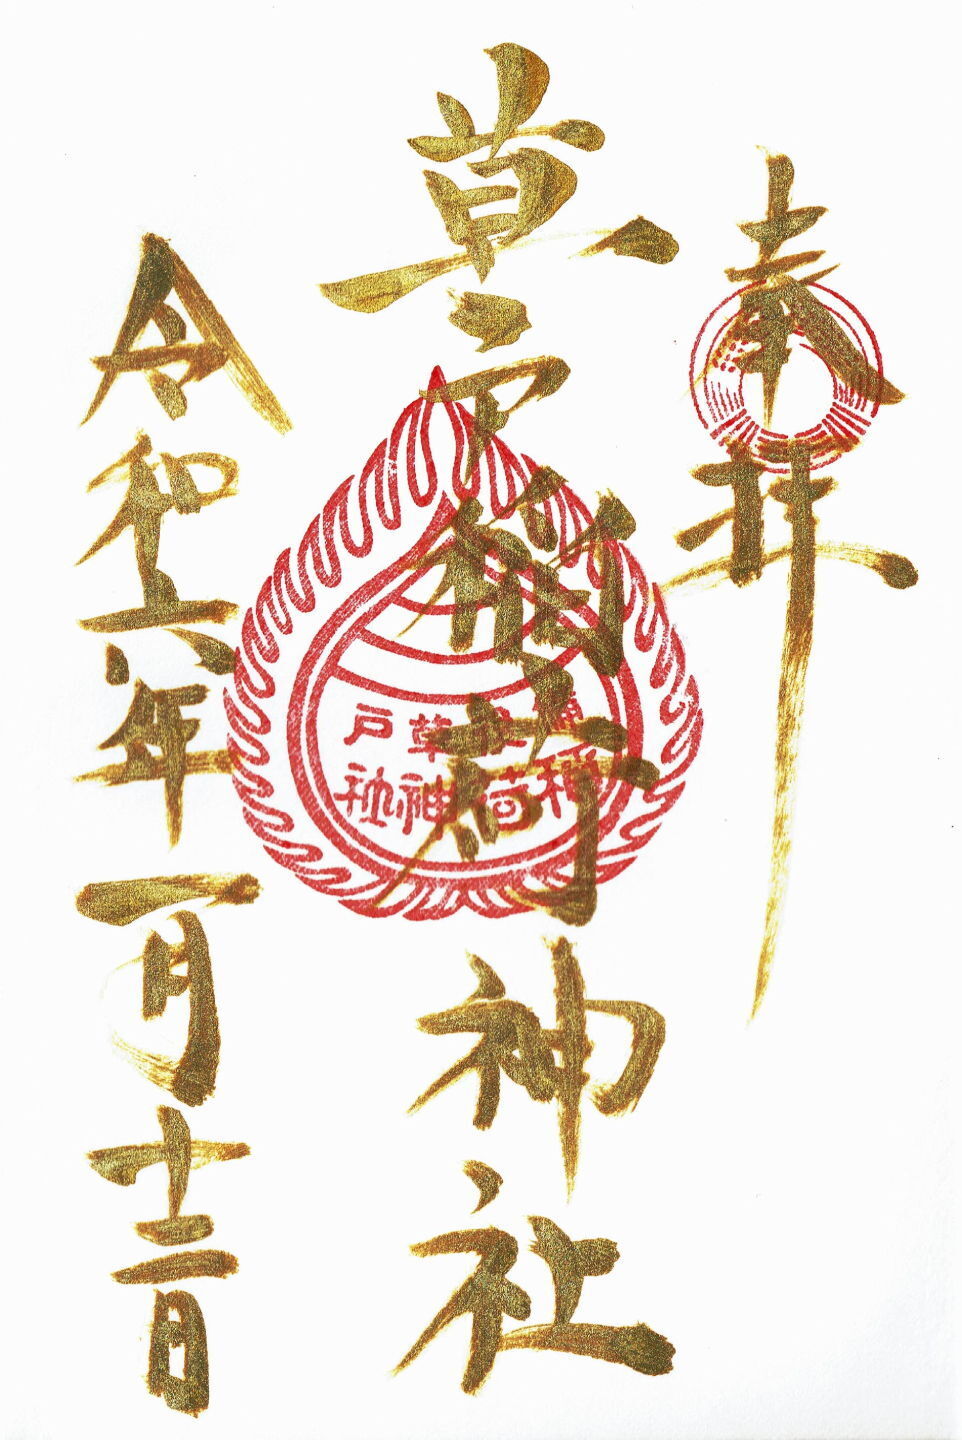 奉拝
草戸稲荷神社
備後草戸
稲荷神社
令和六年一月十二日